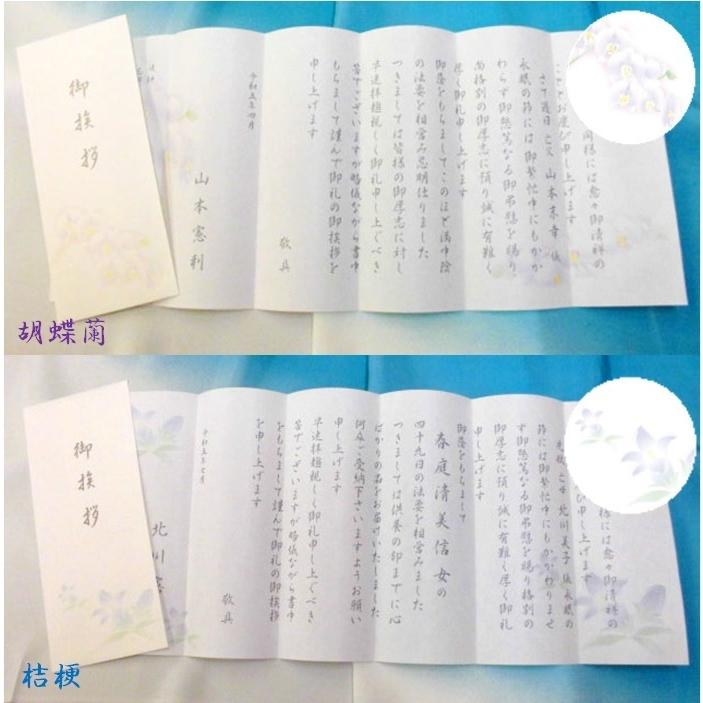 御挨拶
同様には愈々御清祥の
こととお慶び申し上げます
さて過日 亡父 山本
永眠の節には御繁忙中にもかか
わらず御懇篤なる御弔慰を賜り
尚格別の御厚志に預り誠に有難く
厚く御礼申し上げます
御蔭をもちましてこのほど満中陰
の法要を相営み忌明仕りました
つきましては皆様の御厚志に対し
早速拝趨親しく御礼申し上ぐべき
筈でございますが略儀ながら書中
もちまして謹んで御礼の御挨拶を
申し上げます
敬具
令和五年四月
山本憲利
胡蝶蘭
御挨拶
様には愈々御清祥の
び申し上げます
亡母 北川美子 儀 永眠の
節には御繁忙中にもかかわりませ
ず御懇篤なる御弔慰を賜り格別の
御厚志に預り誠に有難く厚く御礼
申し上げます
御蔭をもちまして
春庭清美信女の
四十九日の法要を相営みました
つきましては供養の印までに心
ばかりの品をお届けいたしました
何卒ご受納下さいますようお願い
申し上げます
早速拝趨親しく御礼申し上ぐべき
筈でございますが略儀ながら書中
をもちまして謹んで御礼の御挨拶
を申し上げます
敬具
令和五年七月
北川
桔梗